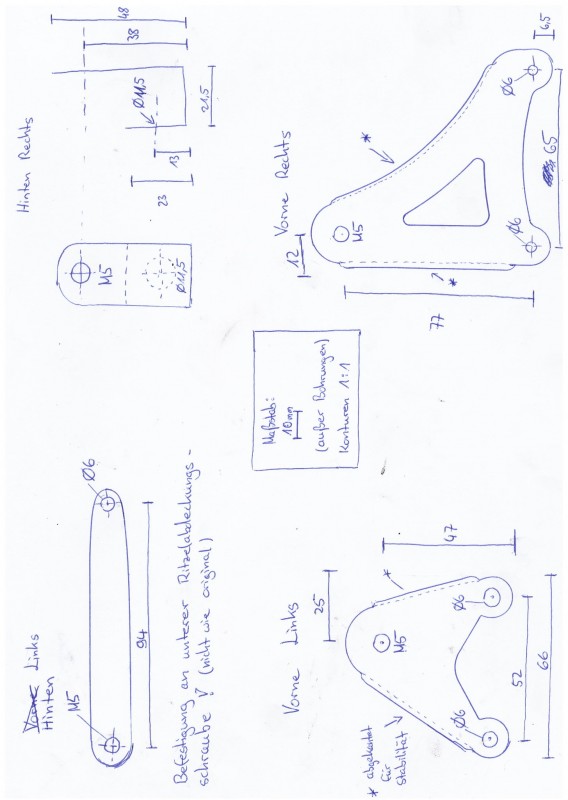 Vorne Links
Hinten
M5
Ø6
94
Befestigung an unterer Ritzelabdeckungs-
schraube ! (nicht wie original)
Hinten Rechts
M5
Ø11,5
48
38
Ø11,5
21,5
13
23
Maßstab:
10mm
(außer Bohrungen)
Konturen 1:1
Vorne Links
25
47
*
M5
Ø6
Ø6
52
66
* abgekantet
für
Stabilität
Vorne Rechts
12
M5
*
*
Ø6
Ø6
6,5
65
77